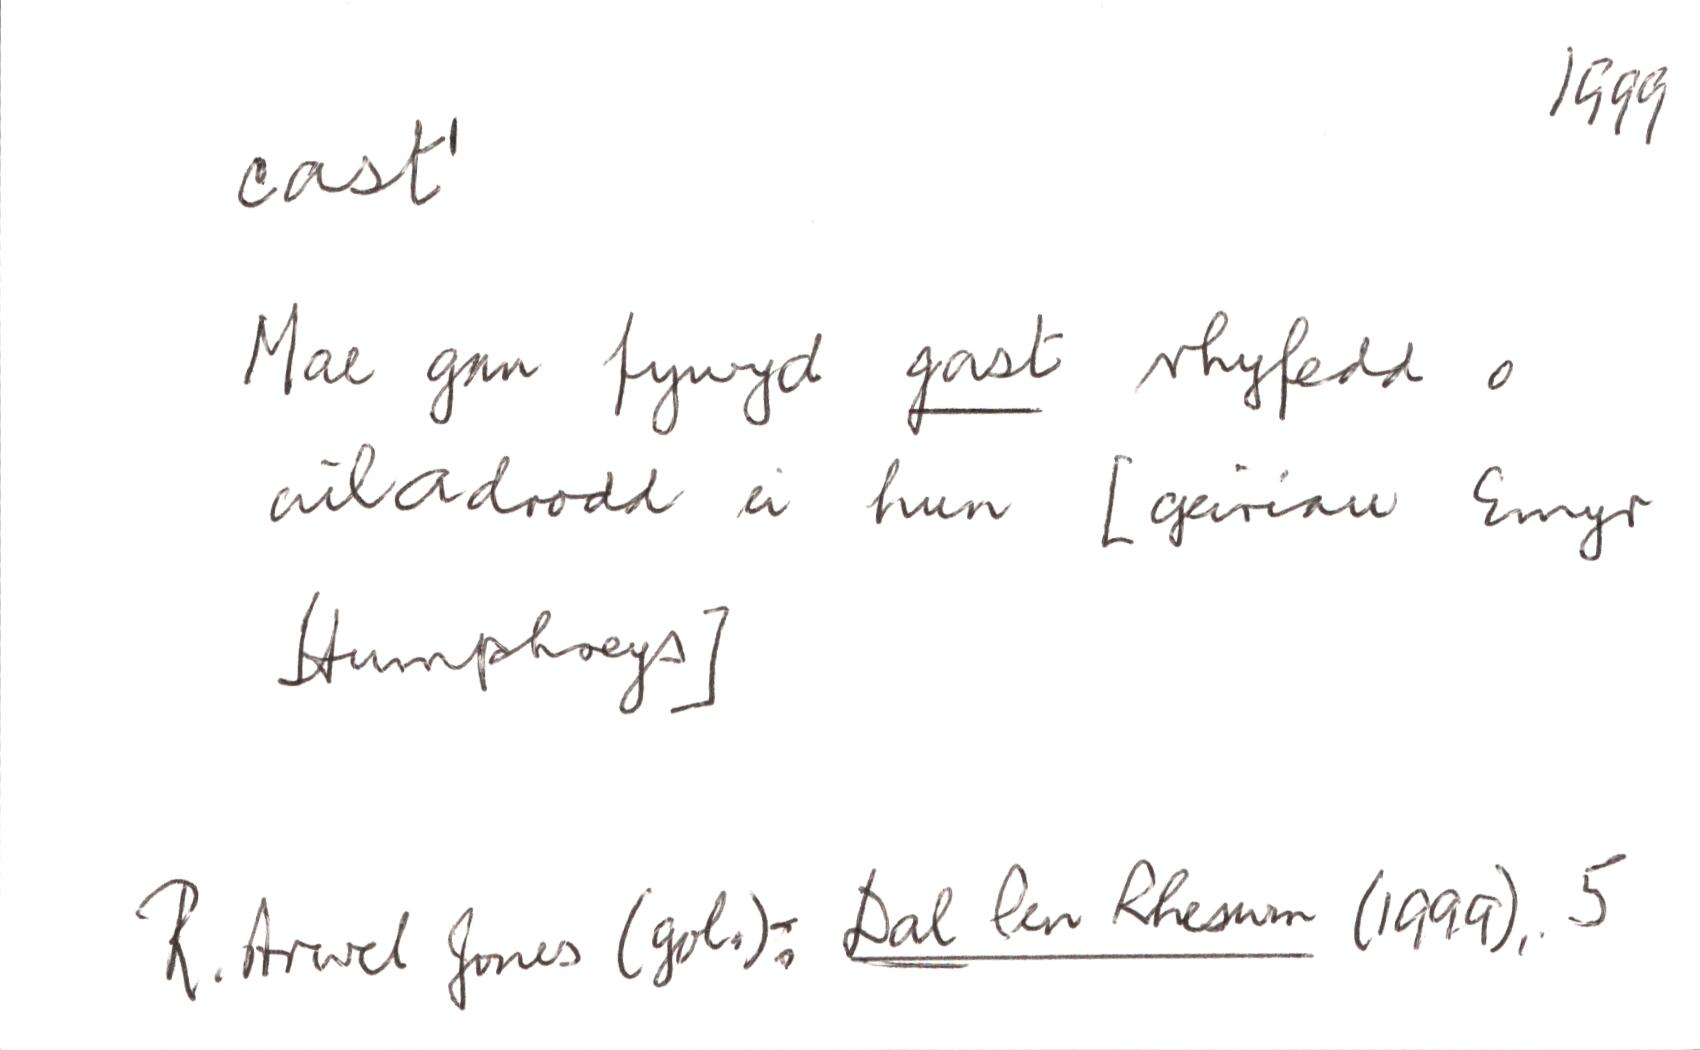 1999
cast¹
Mae gan fywyd gast rhyfedd o
ailadrodd ei hun [geiriau Emyr
Humphreys]
R. Arwel Jones (gol.): Dal Pen Rheswm (1999), 5